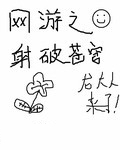 网游之
射破苍穹
右大人
来了!